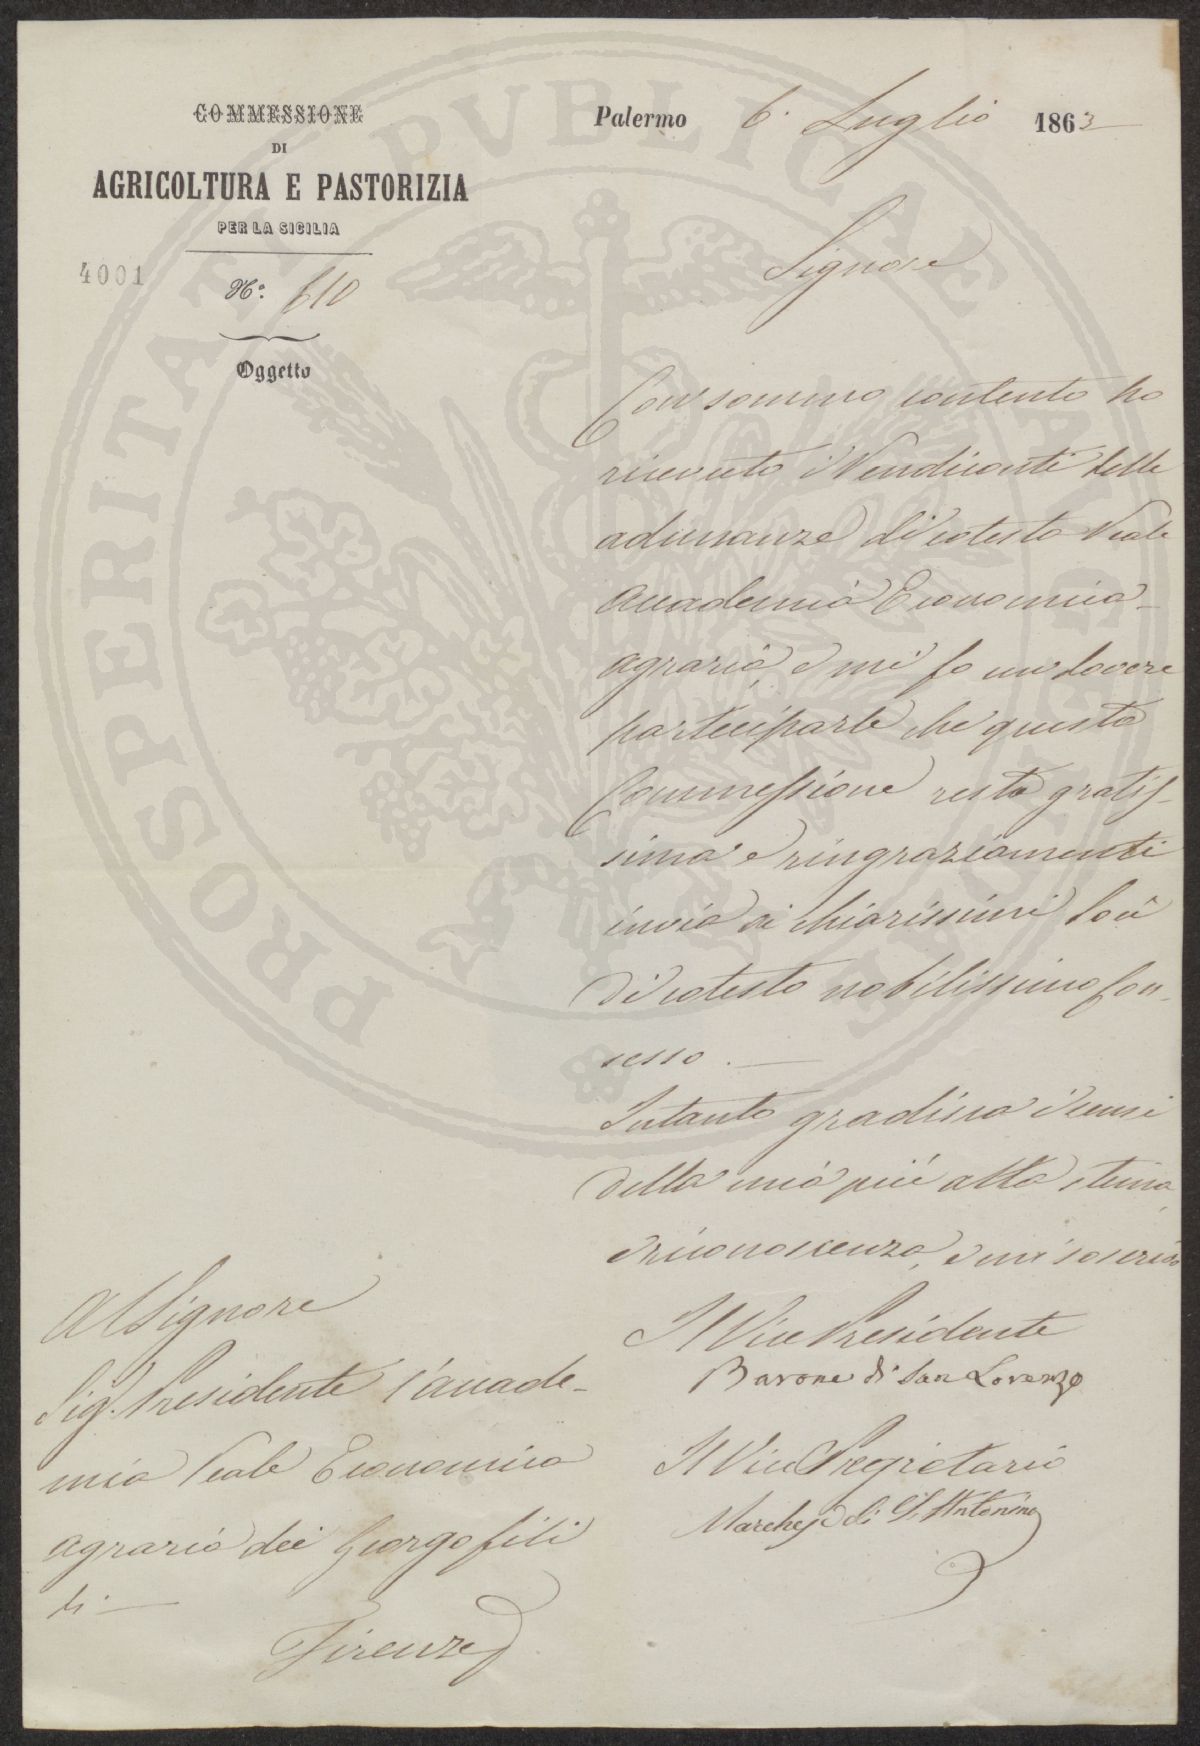 COMMESSIONE
DI
AGRICOLTURA E PASTORIZIA
PER LA SICILIA
4001
N.º 610
Oggetto
Palermo 6. Luglio 1863
Signore
Con sommo contento ho
ricevuto i Rendiconti delle
adunanze di cotesta Reale
Accademia Economica
agraria, e mi fo un dovere
parteciparle che questa
Commessione resta gratis-
sima e ringraziamenti
invia ai chiarissimi Socii
di cotesto nobilissimo Con-
sesso. —
Intanto gradisca i sensi
della mia più alta stima,
e riconoscenza, e mi soscrivo
Il Vice Presidente
Barone di San Lorenzo
Il Vice Segretario
Marchese di S. Antonino
Al Signore
Sig. Presidente l'accade-
mia Reale Economica
agraria dei Georgofili
di —
Firenze
PROSPERITATI PVBLICAE AVGENDAE